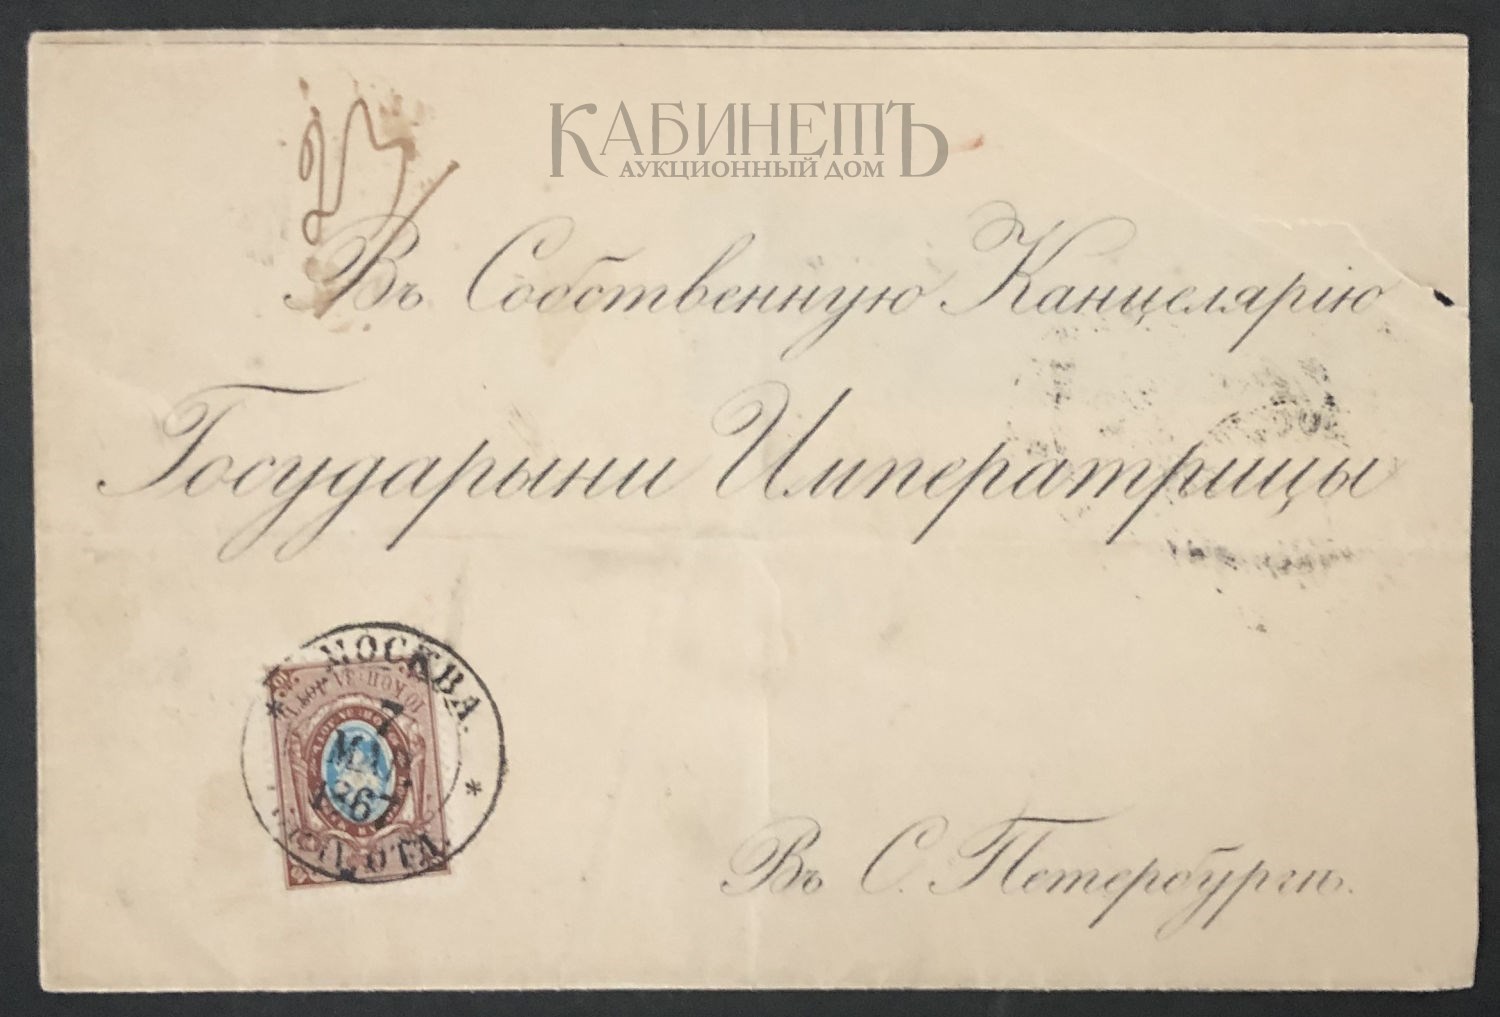 КАБИНЕТЪ
АУКЦИОННЫЙ ДОМ
Въ Собственную Канцелярію
Государыни Императрицы
МОСКВА.
7
МАР.
1867
ОТД.
Въ С. Петербургѣ.